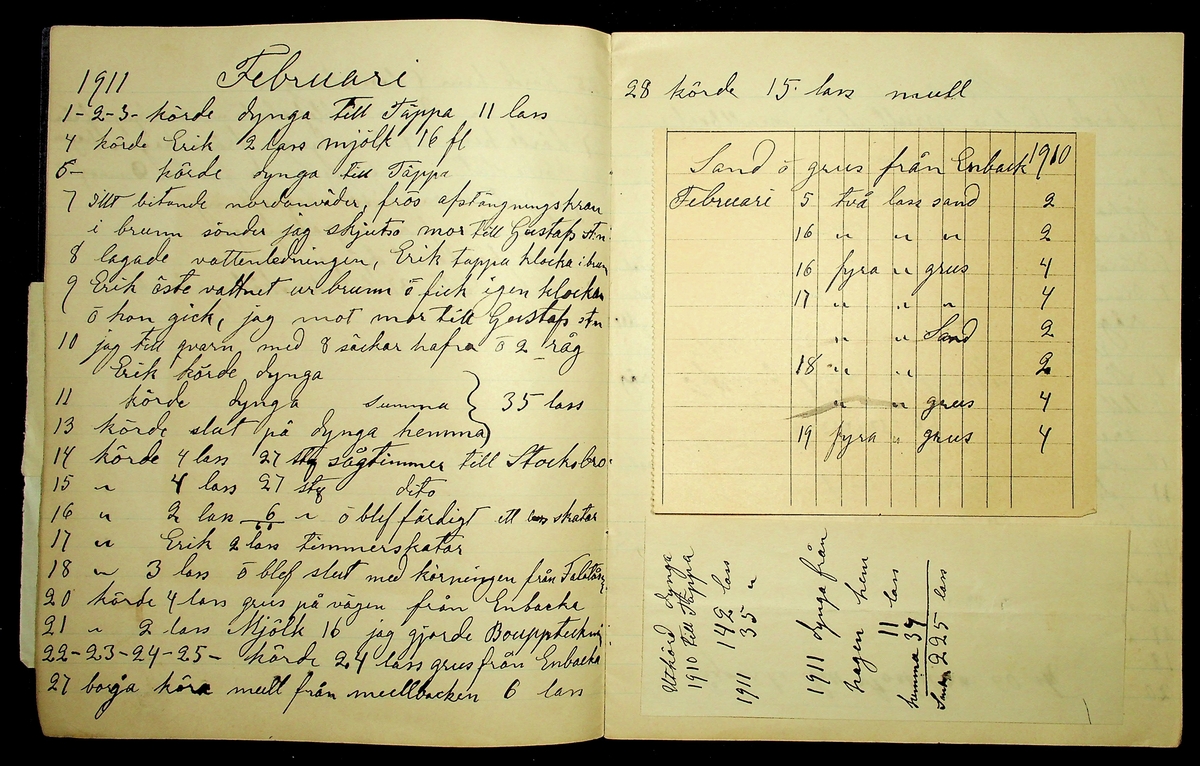 1911 Februari
1-2-3- körde dynga till Täppa 11 lass
4 körde Erik 2 lass mjölk 16 fl
6- körde dynga till Täppa
7 illt bitande nordanväder, frös afstängningskran
i brunn sönder jag skjutsö mor till Gustafs st.n
8 lagade vattenledningen, Erik tappa klocka i brun
9 Erik öste vattnet ur brunn ö fick igen klockan
ö hon gick, jag mot mor till Gustafs st.n
10 jag till qvarn med 8 säckar hafra ö 2 råg
Erik körde dynga
11 körde dynga summa } 35 lass
13 körde slut på dynga hemma
14 körde 4 lass 27 stq sågtimmer till Stocksbro
15 " 4 lass 27 stq dito
16 " 2 lass 6 " ö blef färdigt ett lass skatar
17 " Erik 2 lass timmerskatar
18 " 3 lass ö blef slut med körningen från
20 körde 4 lass grus på vägen från Enbacka
21 " 2 lass Mjölk 16 jag gjorde Bouppteckni
22-23-24-25- körde 24 lass grus från Enbacka
27 börja köra mull från mullbacken 6 lass
28 körde 15 lass mull
Sand ö grus från Enback 1910
Februari 5 två lass sand 2
16 " " " 2
16 fyra " grus 4
17 " " " 4
" " Sand 2
18 " " 2
" " grus 4
19 fyra " grus 4
Utkörd dynga
1910 till Täppa
142 lass
1911 35 "
1911 dynga från
hagen hem
11 lass
hemma 37
Summa 225 lass